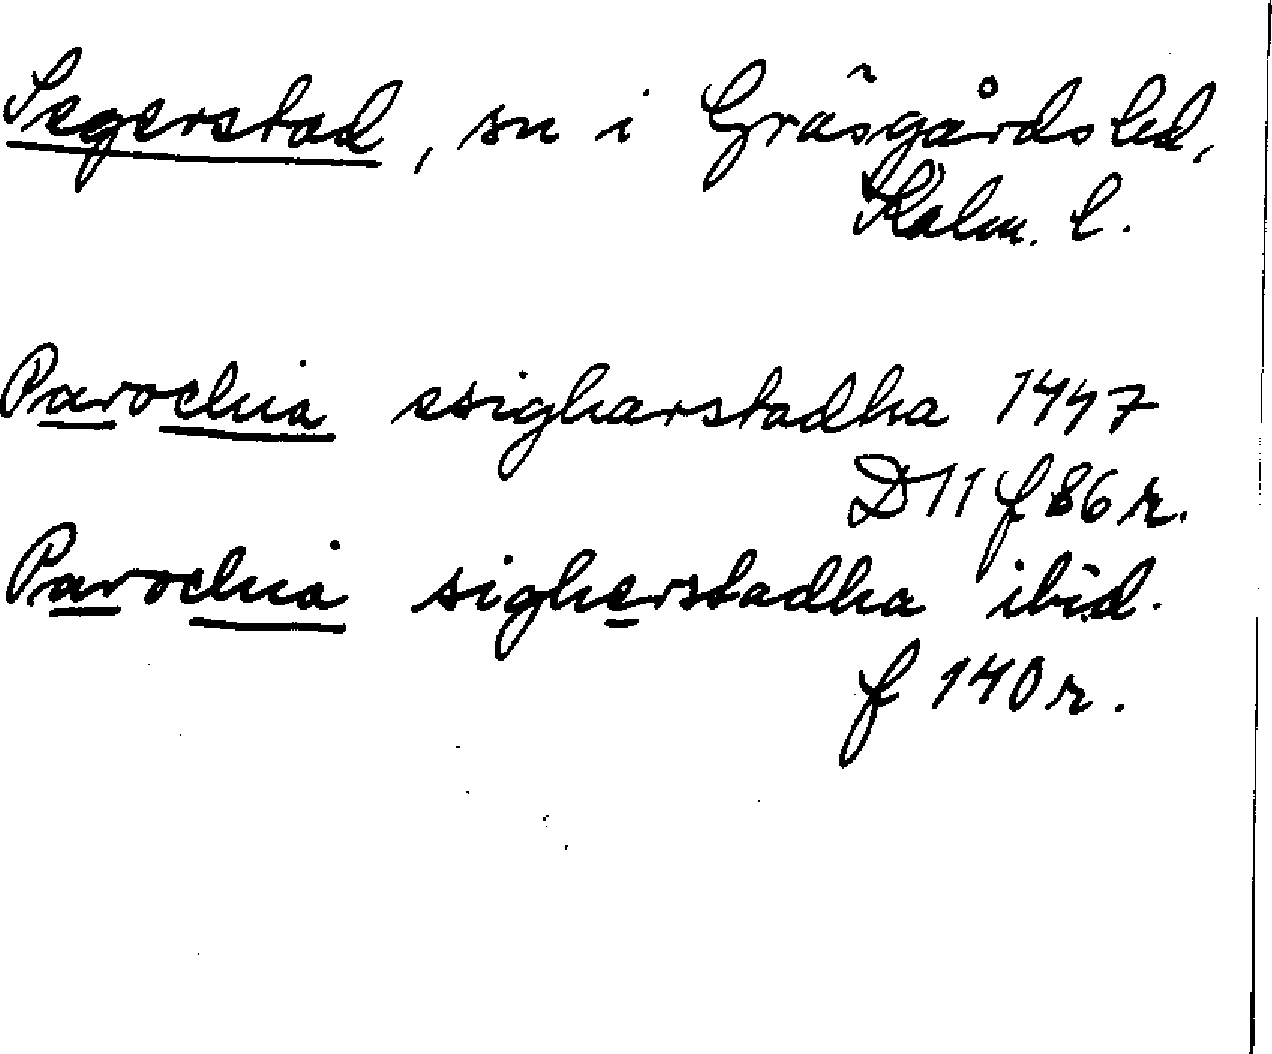 Segerstad, sn i Gräsgårds hd,
Kalm. l.
Parochia ssigharstadha 1447
D 11 f 86 r.
Parochia sigherstadha ibid.
f 140 r.